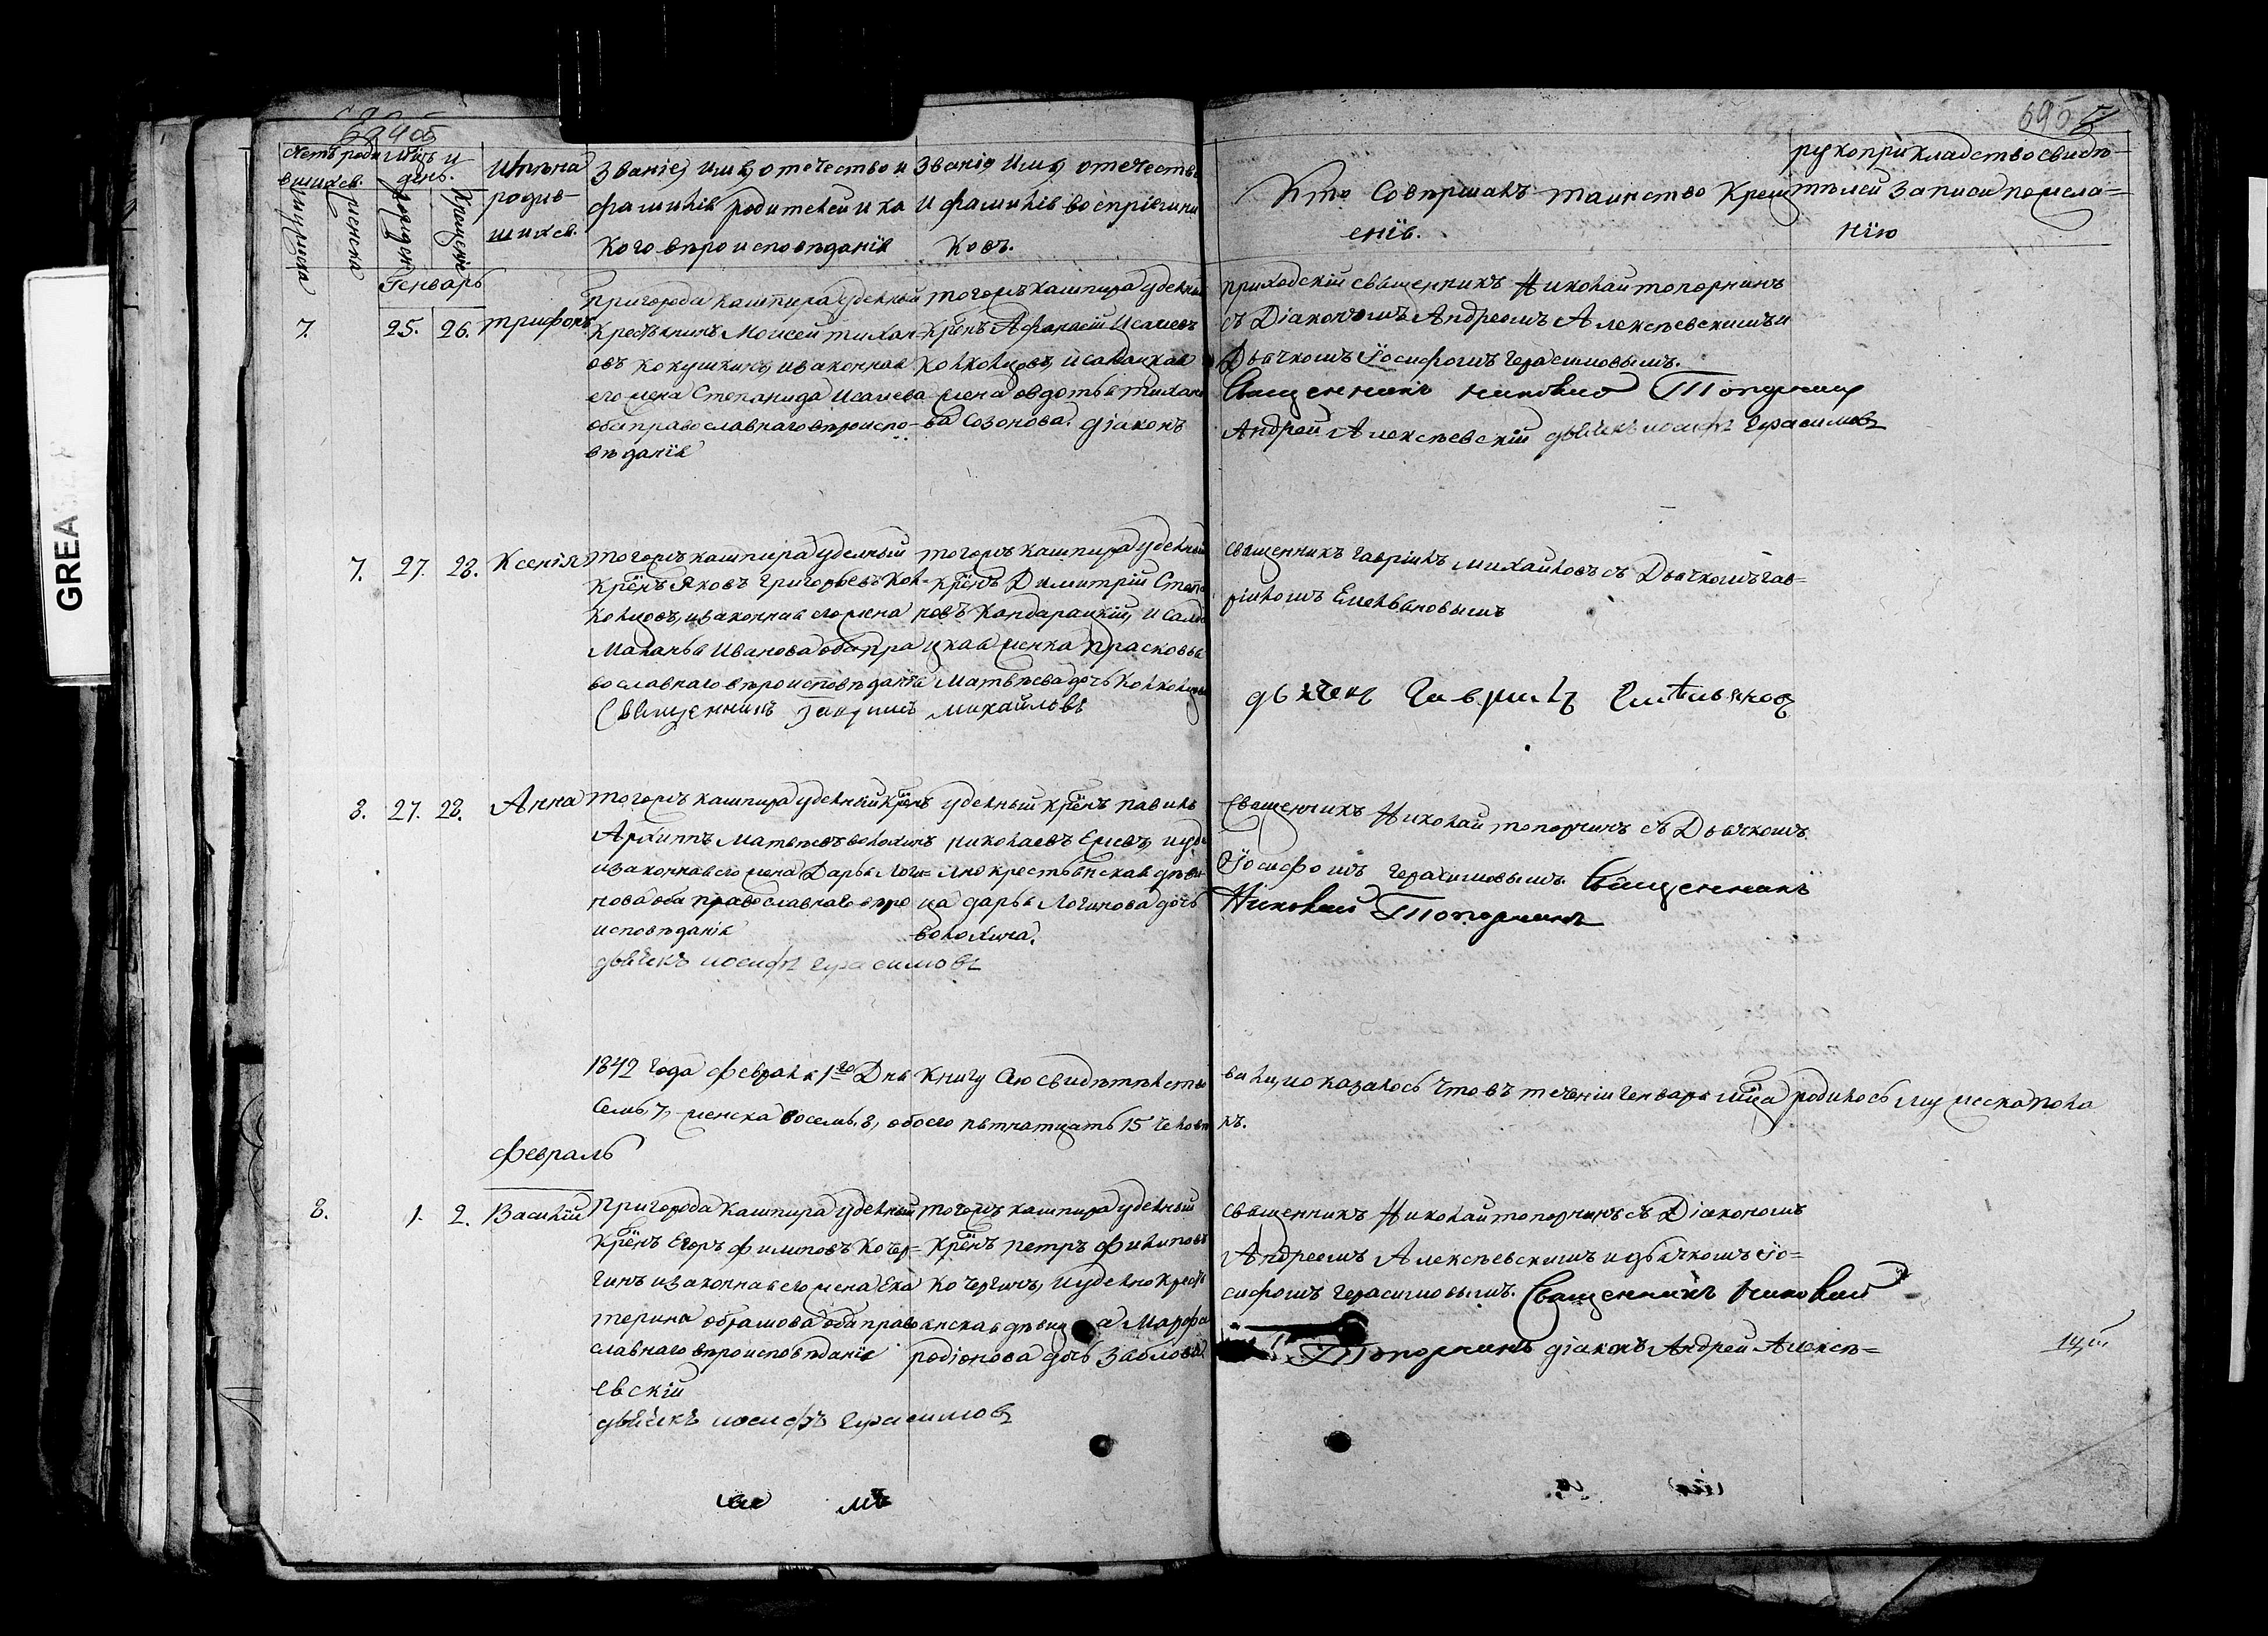 694об
695
GREA
Счетъ роди
вшихся.
мужеска
женска
Мѣсяцъ и
день.
рожденія
крещенія
Имѣна
родив-
шихся.
Званіе, имя, отечество и
фамилія родителей и ка
кого вѣроисповѣданія
Званіе имя, отечество
и фамилія воспріемни
ковъ.
Кто совѣршалъ таинство Крещ
енія.
рукоприкладство свидѣ-
тѣлей записи по жела-
нію
Генварь
7. 25. 26. Трифонъ
Пригорода кашпира удельный
Крестьянинъ Моисей тихан-
овъ кокушкинъ, и законная
его жена Степанида Исаиева
оба православнаго вѣроиспо-
вѣданія
тогожъ кашпира удельный
Крѣнъ Афанасій Исаиевъ
Колкольцовъ, и салдацкая
жена овдотья тихано
ва Созонова. діаконъ
приходскій священникъ Николай топорнинъ
съ Діакономъ Андреемъ Алексѣевскимъ и
Дьячкомъ Іосифомъ Герасимовымъ.
Священникъ Николай Топорнинъ
Андрей Алексѣевскій дьячекъ иосифъ Герасимовъ
7. 27. 28. Ксенія
тогожъ кашпира уделный
Крѣнъ Яковъ Григорьевъ Кол-
кольцовъ, и законная его жена
Маланья Иванова оба пра
вославнаго вѣроисповѣданія
тогожъ кашпира удельный
Крѣнъ Димитрій Степа
новъ Кандарацкій, и салда
цкая женка Прасковья
Матвѣева дочь Колкольцова
Священникъ Гавріилъ Михайловъ
Священникъ Гавріилъ Михайловъ съ Дьячкомъ Гав-
ріиломъ Емельяновымъ
дьячекъ Гаврилъ Емельяновъ
8. 27. 28. Анна
тогожъ кашпира удельный крѣнъ
Архиппъ Матвѣевъ волохинъ
и законная его жена Дарья Логи-
нова оба православнаго вѣро
исповѣданія
удельный крѣнъ павилъ
николаевъ Ежевъ, и уде
лно крестьянская дѣви-
ца дарья Логинова дочь
волохина.
дьячекъ иосифъ Герасимовъ
Священникъ Николай топорнинъ съ Дьячкомъ
Іосифомъ Герасимовымъ. Священникъ
Николай Топорнинъ
1842 года февраля 1го Дня Книгу сію свидѣтѣльство
вали, и оказалось что въ теченіи Генваря мца родилось мужеска пола
Семь, 7, женска восемь, 8, обоего пятнатцать 15 человѣ
къ.
февраль
8. 1. 2. Василій
Пригорода кашпира удельный
Крѣнъ Егоръ филиповъ Кочер-
гинъ и законная его жена Ека
терина обрамова оба право
славнаго вѣроисповѣданія
тогожъ кашпира удельный
Крѣнъ петръ филиповъ
Кочергинъ, и удельно кресть
янская дѣвица Марфа
родіонова дочь
евскій
дьячекъ иосифъ Герасимовъ
Священникъ Николай топорнинъ съ Діакономъ
Андреемъ Алексѣевскимъ и дьячкомъ Іо-
сифомъ Герасимовымъ. Священникъ Николай
Топорнинъ діаконъ Андрей Алексѣ-